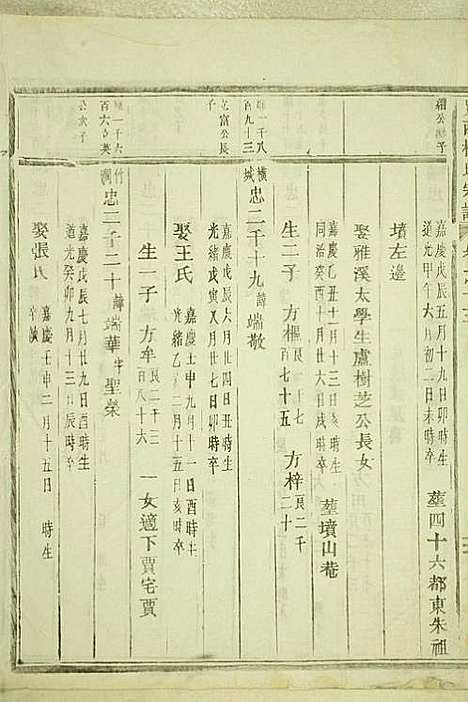 嘉慶戊辰五月十九日卯時生
道光甲午六月初二日未時卒
塟四十六都東朱祖
墳左邊
娶雅溪太學生盧樹芝公長女
嘉慶乙丑十一月十三日亥時生
同治癸酉十月十六日戌時卒
塟墳山菴
生二子 方樞 七 百七十五 方梓 艮二千 二十
忠二千十九 諱端敬
嘉慶戊辰六月廿四日丑時生
光緒戊寅八月廿七日卯時卒
娶王氏
嘉慶壬申九月十一日酉時生
光緒乙 二月十五日亥時卒
生一子 方牟 艮二千三 百八十六 一女適下賈宅賈
忠二千二十 諱端華 字聖榮
嘉慶戊辰七月廿九日酉時生
道光癸卯九月十三日辰時卒
娶張氏
嘉慶壬申二月十五日 時生